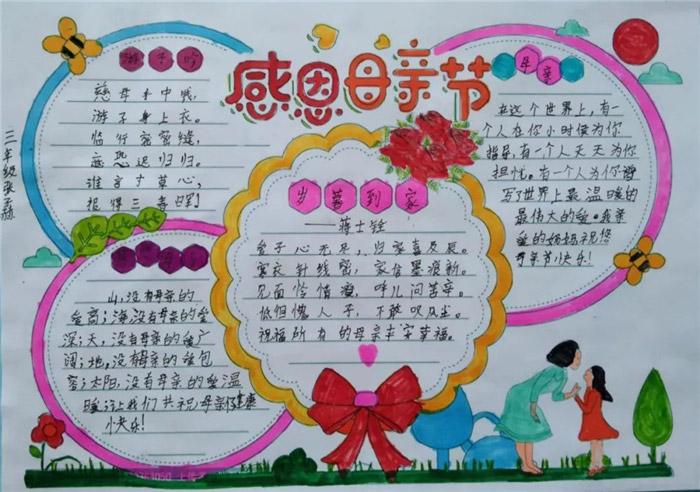 三年级
感恩母亲节
游子吟
慈母手中线,
游子身上衣。
临行密密缝,
意恐迟归归。
谁言寸草心,
报得三春晖!
母亲
在这个世界上,有一
个人在你小时候为你
指导,有一个人天天为你
担忧,有一个人为你谱
写世界上最温暖的
最伟大的爱。我亲
爱的妈妈祝您
母亲节快乐!
岁暮到家
——蒋士铨
爱子心无尽,归家喜及辰。
寒衣针线密,家信墨痕新。
见面怜清瘦,呼儿问苦辛。
低佪愧人子,不敢叹风尘。
祝福所有的母亲丰字幸福。
山,没有母亲的
爱高;海,没有母亲的爱
深;天,没有母亲的爱广
阔;地,没有母亲的爱包
容;太阳,没有母亲的爱温
暖;让我们共祝母亲健康
快乐!